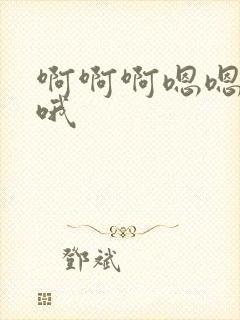 啊啊啊嗯嗯
哦
鄧斌